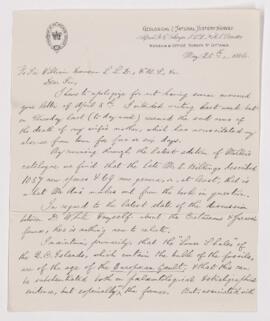 GEOLOGICAL & NATURAL HISTORY SURVEY
MUSEUM & OFFICE SUSSEX ST. OTTAWA
May 25th, 188
To Sir William Dawson L.L.D., F.R.S. &c
Dear Sir,
I have to apologize for not having sooner answered
your letter of April 8th. I intended writing last week but
on Thursday last (to day week) received the sad news of
the death of my wife's mother, which has necessitated my
absence from town for five or six days.
By running through the latest edition of Miller's
catalogue, we find that the late Mr. E. Billings described
1057 new species & 61 new genera, or at least, that is
what Mr. Ami makes out from the book in question.
In regard to the latest state of the discussion
between Dr. White & myself about the Cretaceous &
faunas, there is nothing new to relate.
I maintain primarily, that the "Lower Shales" of
the Q.C. Islands, which contain the bulk of the fossils,
are of the age of the European Gault, & that this can
be substantiated both on palaeontological & stratigraphical
evidence, but especially the former. But, associated with